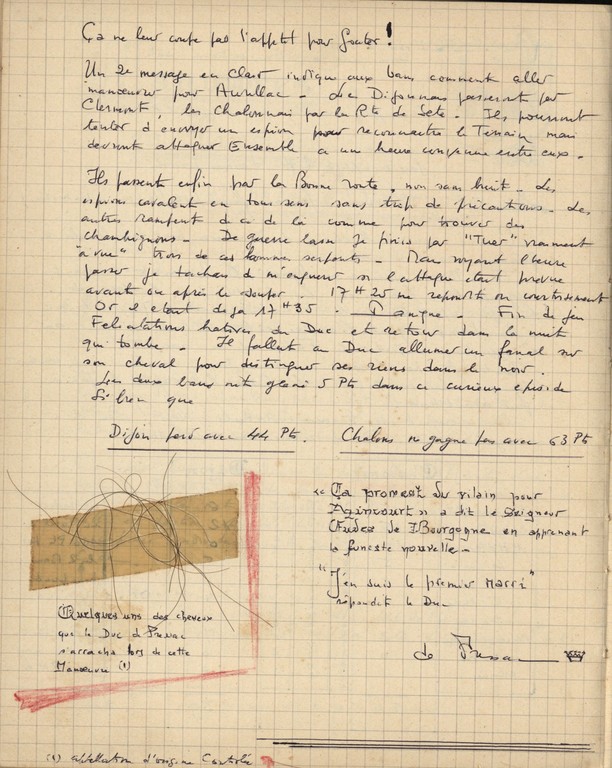 Ça ne leur coupe pas l'appétit pour gouter !
Un 2e message en clair indique aux bans comment aller
manoeuvrer pour Aurillac - Les Dijonnais passeront par
Clermont, les Chalonnais par la Rte de Sete. Ils pourront
tenter d'envoyer un espion pour reconnaitre le Terrain mais
devront attaquer Ensemble a une heure convenue entre eux.
Ils passent enfin par la Bonne route, non sans bruit - Les
espions cavalent en tous sens sans trop de précautions. Les
autres rampent de ci de là comme pour trouver des
champignons - De guerre lasse je finis par "Tuer" vraiment
"à vue" trois de ces hommes serpents - Mais voyant l'heure
passer je tachai de m'enquerir si l'attaque etait prévue
avant ou après le souper - 17 H 25 me repondit on
Or il etait deja 17 H 35 . - Fin de jeu
Felicitations hatives du Duc et retour dans la nuit
qui tombe - Il fallut au Duc allumer un fanal sur
son cheval pour distinguer ses siens dans le noir.
Les deux bans ont glané 5 Pts dans ce curieux episode
Si bien que
Dijon perd avec 44 Pts. Chalons ne gagne pas avec 63 Pts
"Ça promet du vilain pour
Azincourt" a dit le Seigneur
Eudes de Bourgogne en apprenant
la funeste nouvelle -
"J'en suis le premier Marri"
répondit le Duc
de
Quelques uns des cheveux
que le Duc de
s'arracha lors de cette
Manoeuvre (1)
(1) appellation d'origine Controlée